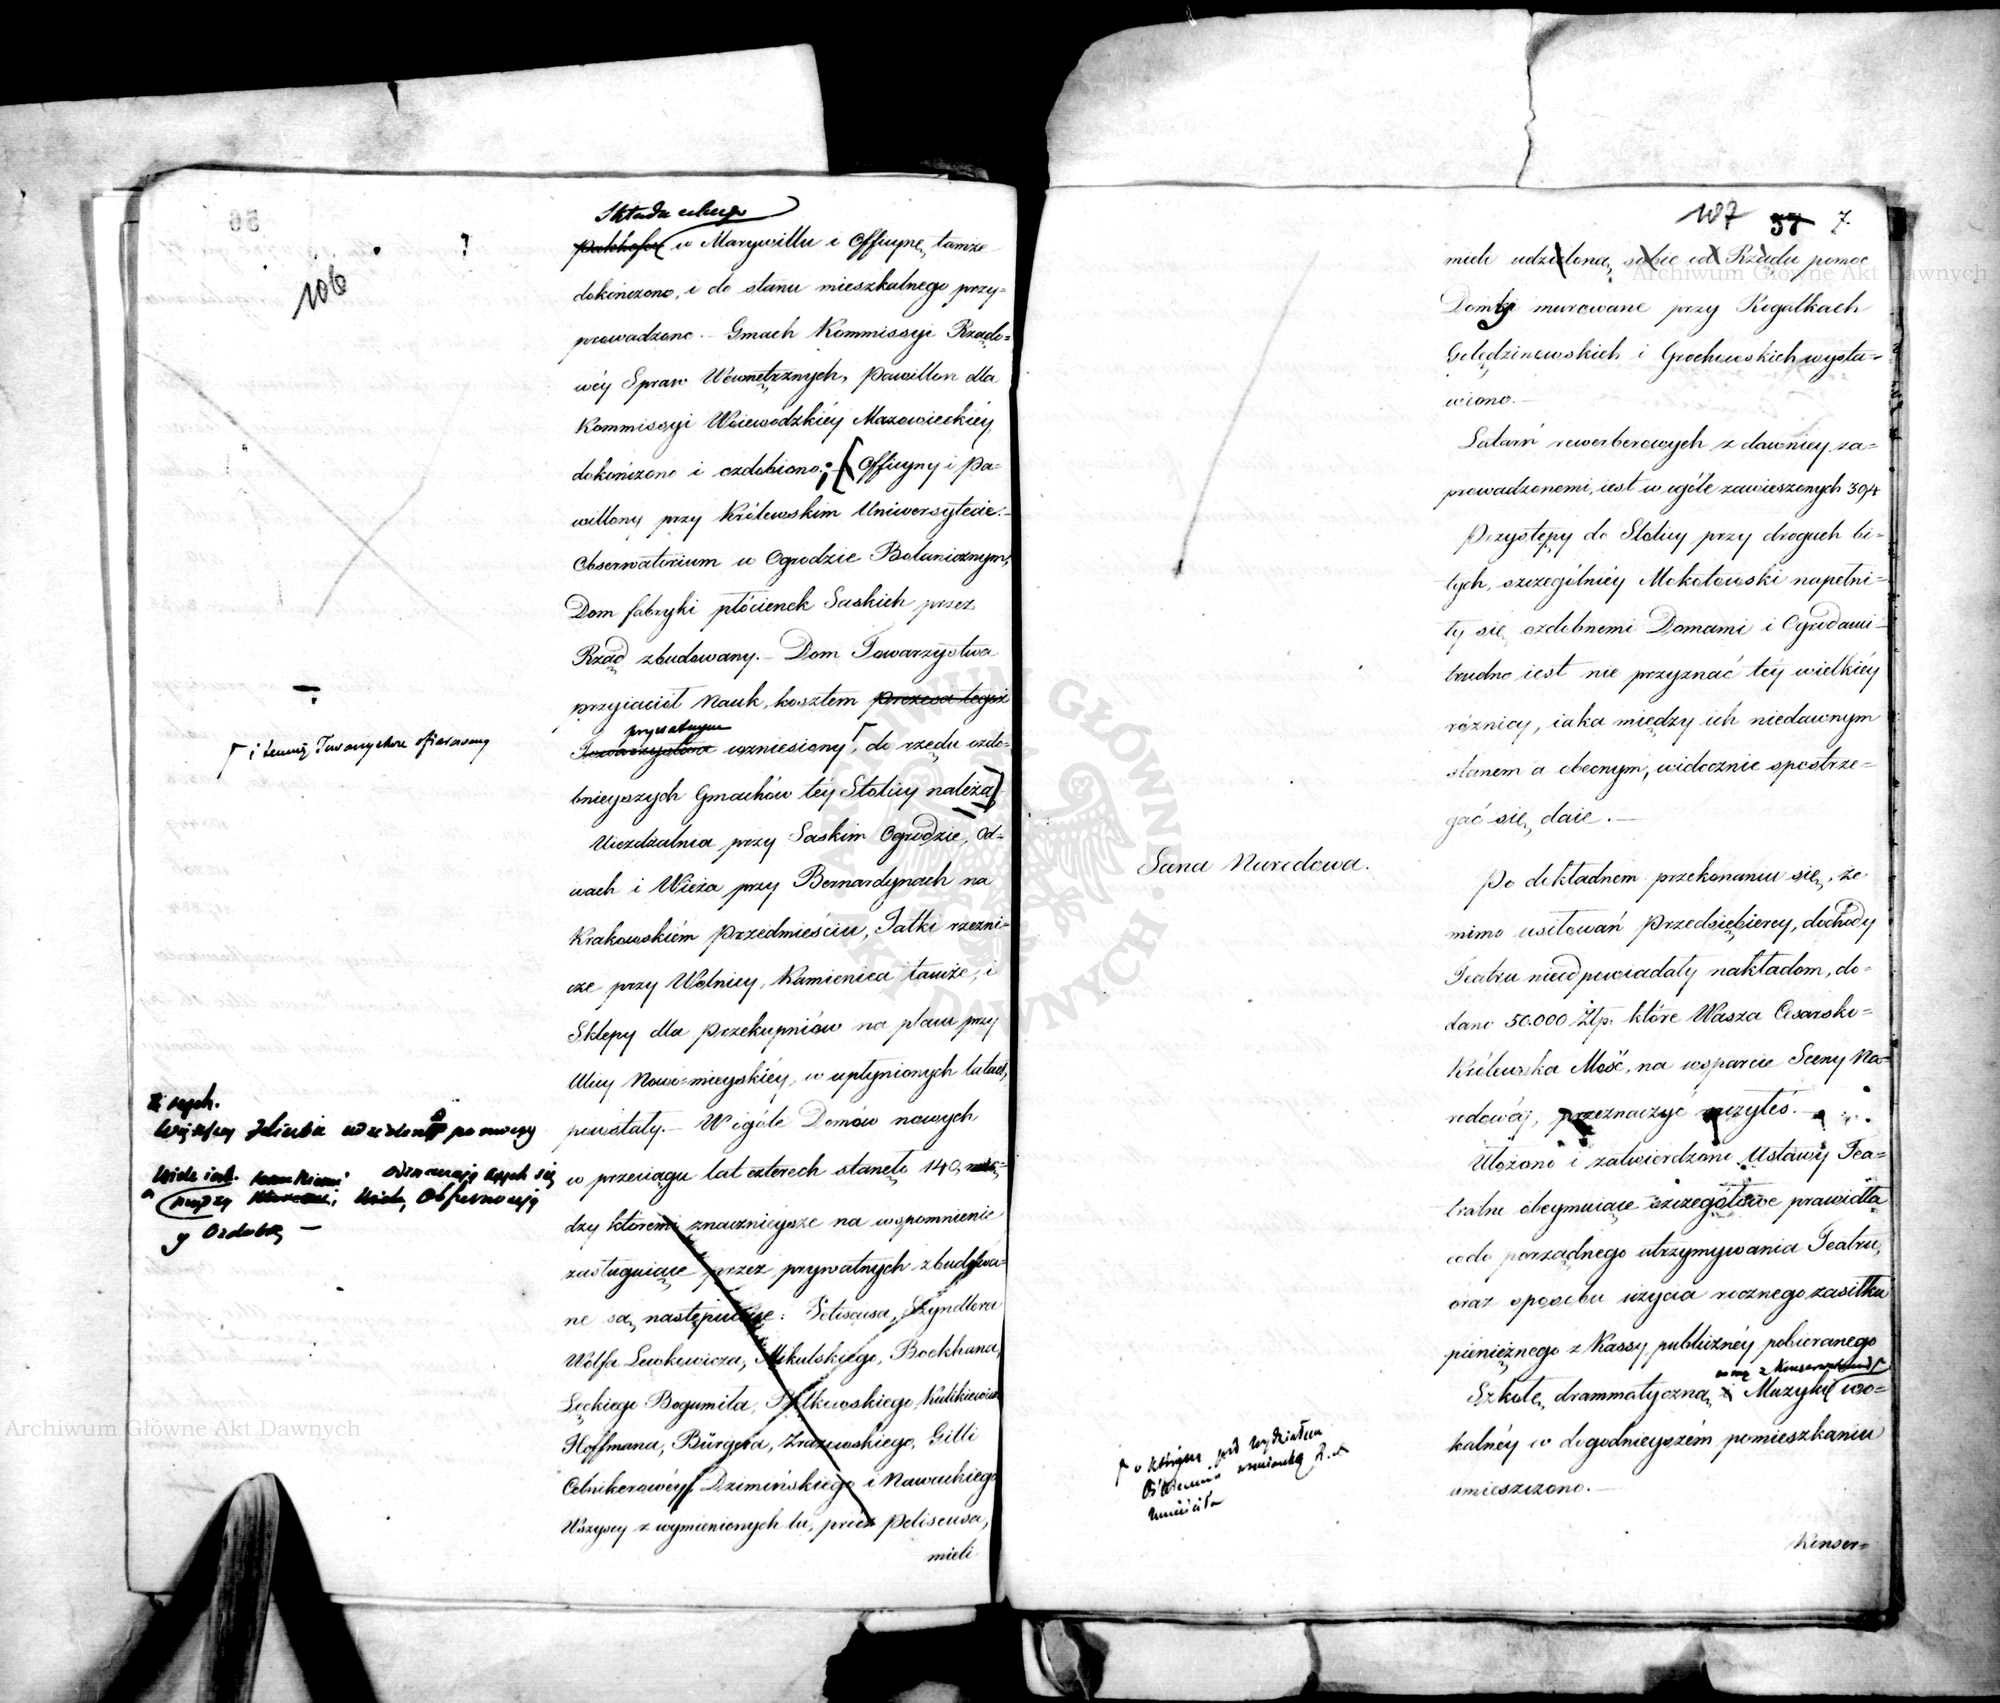 106
Składu celnego
pakhofu w Marywillu i Officynę tamże
dokończono, i do stanu mieszkalnego przy=
prowadzono. – Gmach Kommissyi Rządo=
wéy Spraw Wewnętrznych, Pawillon dla
Kommissyi Woiewódzkiéy Mazowieckiéy
dokończono i ozdobiono. Officyny i Pa=
willony przy Królewskim Uniwersytecie. –
Obserwatorium w Ogrodzie Botanicznym,
Dom fabryki płócienek Saskich przez
Rząd zbudowany. – Dom Towarzystwa
przyiaciół Nauk, kosztem prezesa tegoż
prywatnym
Towarzystwa wzniesiony, do rzędu ozdo=
i temuż Towarzystwu ofiarowany
bnieyszych Gmachów téy Stolicy należą
Uieżdżalnia przy Saskim Ogrodzie, Od=
wach i Wieża przy Bernardynach na
Krakowskiém Przedmieściu, Jatki rzeźni=
cze przy Wolnicy, Kamienica tamże, i
Sklepy dla Przekupniów na placu przy
Ulicy Nowo=mieyskiéy, w upłynionych latach,
powstały. – W ogóle Domów nowych
w przeciągu lat czterech stanęło 140, mię=
dzy któremi znacznieysze na wspomnienie
zasługuiące przez prywatnych zbudowa=
ne są następuiące: Peliseusa, Szyndlera
Wolfa Lewkowicza, Mikulskiego, Bockhana,
Łęckiego Bogumiła, Kulikiewicza
Hoffmana, Bürgera, Zrazowskiego, Gilli
Celnikerowéy, Dzimińskiego i Nawackiego
Wszyscy z wymienionych tu, prócz Peliseusa,
mieli
większey udzieloney pomocy
Ozdobą –
107 7.
mieli udzieloną sobie od Rządu pomoc
Domki murowane przy Rogatkach
Golędzinowskich i Grochowskich wysta=
wiono. –
Latarń rewerberowych z dawniey za=
prowadzonemi, iest w ogóle zawieszonych 394
Przystępy do Stolicy przy drogach bi=
tych, szczególniéy Mokotowski napełni=
ły się ozdobnemi Domami i Ogrodami –
trudno iest nie przyznać téy wielkiéy
różnicy, iaka między ich niedawnym
stanem a obecnym, widocznie spostrze=
gać się daie. –
Scena Narodowa.
Po dokładnem przekonaniu się, że
mimo usiłowań Przedsiębiercy, dochody
Teatru nieodpowiadały nakładom, do=
dano 50.000 Złp. które Wasza Cesarsko=
Królewska Mość, na wsparcie Sceny Na=
rodowéj, przeznaczyć raczyłeś. –
Ułożono i zatwierdzono Ustawy Tea=
tralne obeymuiące szczegółowe prawidła
co do porządnego utrzymywania Teatru,
oraz sposobu użycia rocznego zasiłku
pieniężnego z Kassy publicznéy pobieranego
Szkołę drammatyczną i Muzyki wo=
kalnéy w dogodnieyszém pomieszkaniu
umieszczono. –
o którym pod Wydziałem
Oświecenia wzmiankę
umieściła
Konser=
Archiwum Główne Akt Dawnych
Archiwum Główne Akt Dawnych
ARCHIWUM GŁÓWNE AKT DAWNYCH